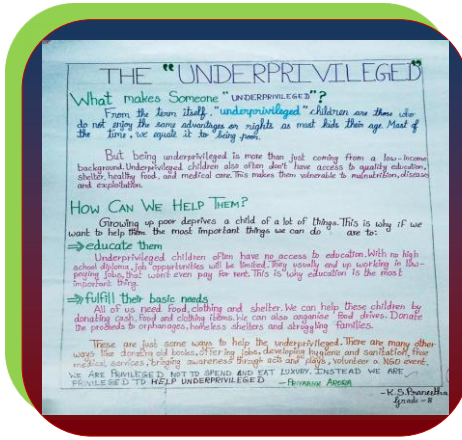 THE "UNDERPRIVILEGED"
What makes Someone "UNDERPRIVILEGED"?
From the term itself, "underprivileged" children are those who
do not enjoy the same advantages or rights as most kids their age. Most of
the time, we equate it to being poor.
But being underprivileged is more than just coming from a low-income
background. Underprivileged children also often don't have access to quality education,
shelter, healthy food, and medical care. This makes them vulnerable to malnutrition, disease
and exploitation.
HOW CAN WE HELP THEM?
Growing up poor deprives a child of a lot of things. This is why if we
want to help them the most important things we can do are to:
⇒ educate them
Underprivileged children often have no access to education. With no high
school diploma, job opportunities will be limited. They usually end up working in low-
paying jobs, that wont even pay for rent. This is why education is the most
important thing.
⇒ fulfill their basic needs
All of us need food, clothing and shelter. We can help these children by
donating cash, food and clothing items. We can also organise food drives. Donate
the proceeds to orphanages, homeless shelters and struggling families.
These are just some ways to help the underprivileged. There are many other
ways like donating old books, offering jobs, developing hygiene and sanitation, free
medical services, bringing awareness through acts and plays, volunteer a NGO event and.
WE ARE PRIVILEGED NOT TO SPEND AND EAT LUXURY. INSTEAD WE ARE
PRIVILEGED TO HELP UNDERPRIVILEGED - PRIYANK ARORA
- K.S.Praneetha
Grade - 8